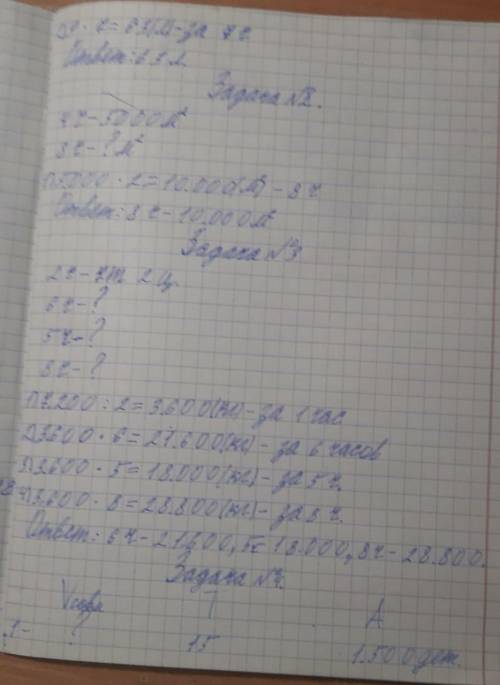 9 · 7 = 63(л)-за 7ч.
Ответ: 63л.
Задача №2.
4ч-5000м²
8ч-?м²
1)5000 · 2=10.000(м²)-8ч
Ответ: 8ч-10.000м²
Задача №3
2ч-7т 2ц.
6ч-?
5ч-?
8ч-?
1)7.200 : 2=3.600(кг)-за 1 час
2)3600 · 6=21.600(кг)-за 6 часов
3)3.600 · 5=18.000(кг)-за 5ч.
4)3.600 · 8=28.800(кг)-за 8ч.
Ответ: 6ч-21.600, 5ч-18.000, 8ч-28.800.
Задача №4.
T A
? 15 1.500 дет.